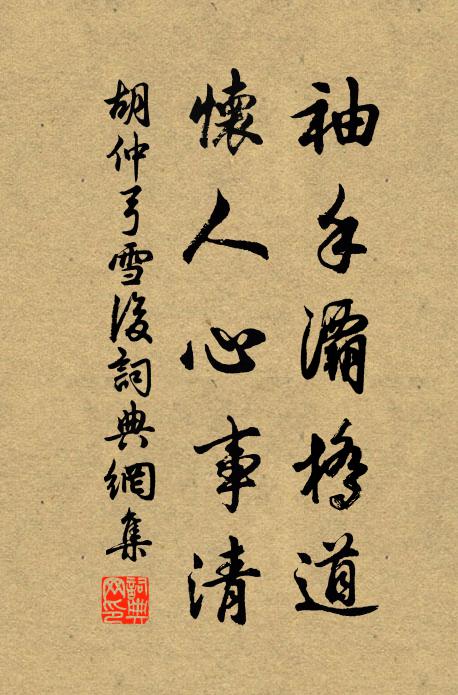 袖手灞橋道
懷人心事清
胡仲弓雪後詞典網集
詞典網印